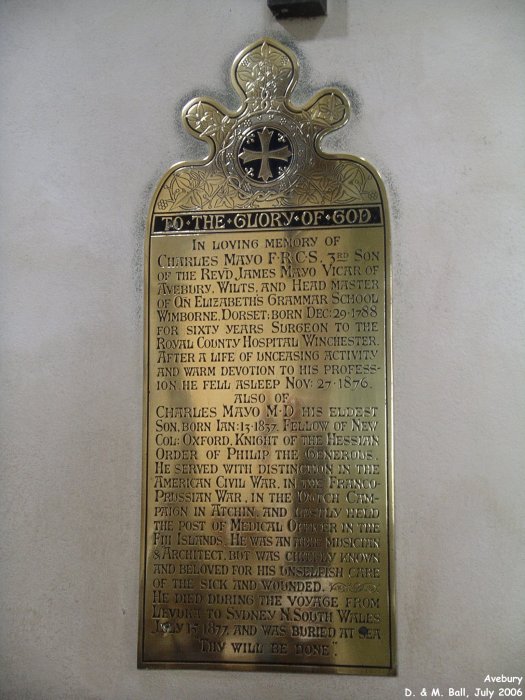 TO · THE · GLORY · OF · GOD
IN LOVING MEMORY OF
CHARLES MAYO F·R·C·S, 3RD SON
OF THE REVD, JAMES MAYO VICAR OF
AVEBURY, WILTS, AND HEAD MASTER
OF QN ELIZABETH'S GRAMMAR SCHOOL
WIMBORNE, DORSET: BORN DEC: 29·1788
FOR SIXTY YEARS SURGEON TO THE
ROYAL COUNTY HOSPITAL WINCHESTER.
AFTER A LIFE OF UNCEASING ACTIVITY
AND WARM DEVOTION TO HIS PROFESS-
ION HE FELL ASLEEP NOV: 27·1876.
ALSO OF
CHARLES MAYO M·D, HIS ELDEST
SON, BORN JAN: 13·1837, FELLOW OF NEW
COL: OXFORD, KNIGHT OF THE HESSIAN
ORDER OF PHILIP THE GENEROUS.
HE SERVED WITH DISTINCTION IN THE
AMERICAN CIVIL WAR, IN THE FRANCO-
PRUSSIAN WAR, IN THE DUTCH CAM-
PAIGN IN ATCHIN, AND LASTLY HELD
THE POST OF MEDICAL OFFICER IN THE
FIJI ISLANDS. HE WAS AN ABLE MUSICIAN
& ARCHITECT, BUT WAS CHIEFLY KNOWN
AND BELOVED FOR HIS UNSELFISH CARE
OF THE SICK AND WOUNDED.
HE DIED DURING THE VOYAGE FROM
LEVUKA TO SYDNEY N. SOUTH WALES
JULY 15 1877, AND WAS BURIED AT SEA
"THY WILL BE DONE".
Avebury
D. & M. Ball, July 2006